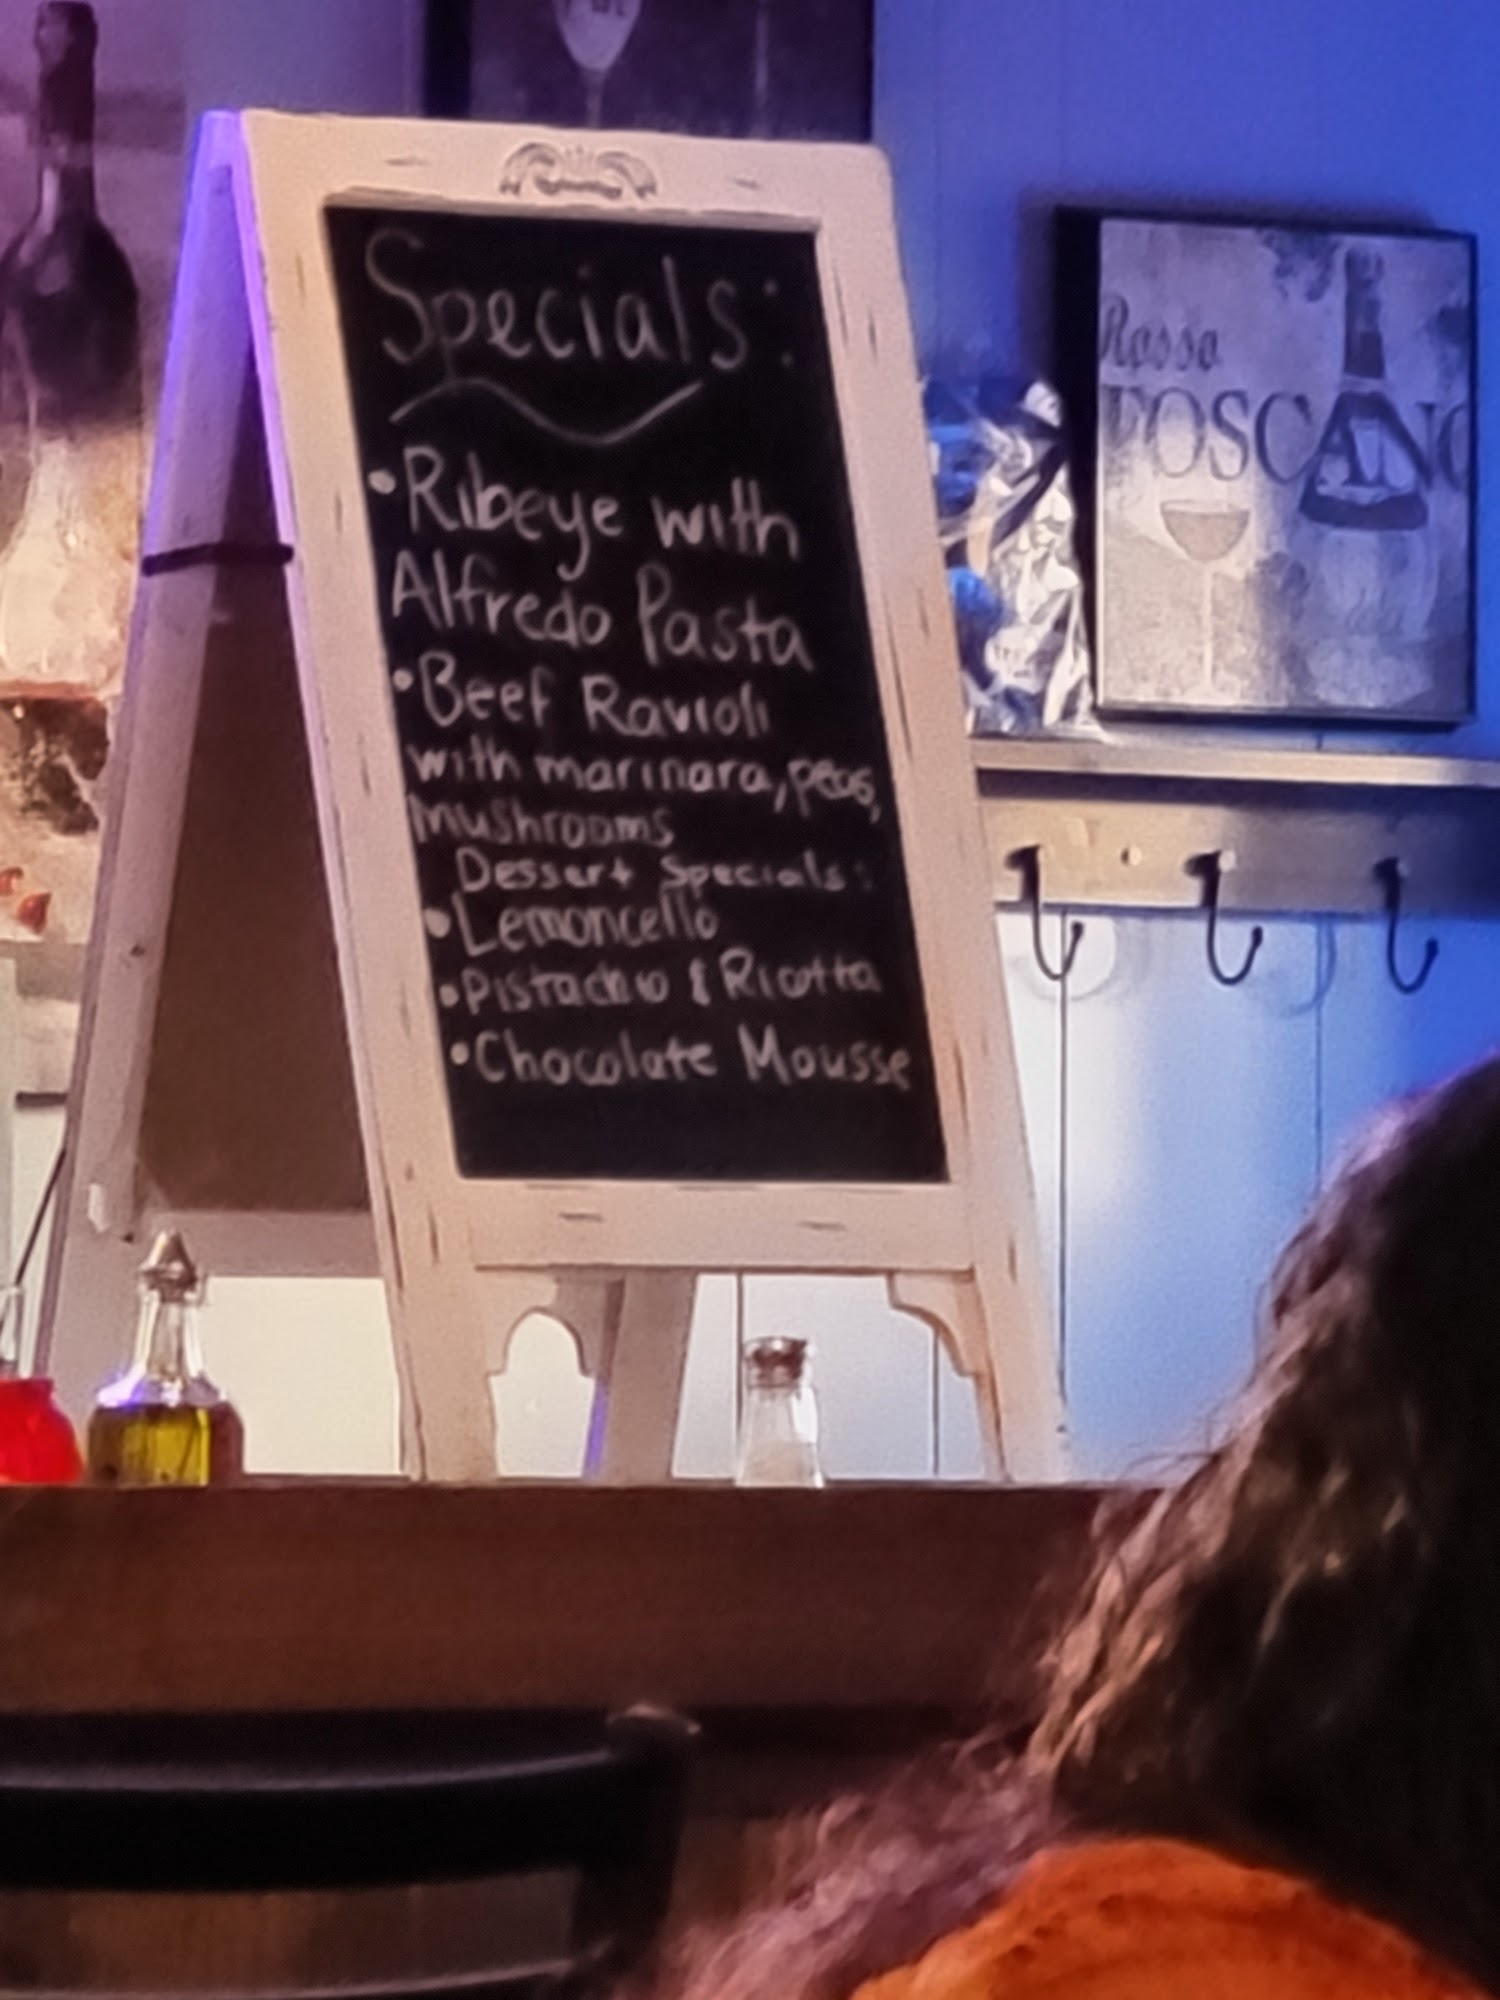 Specials:
•Ribeye with
Alfredo Pasta
•Beef Ravioli
with marinara, peas,
mushrooms
Dessert Specials:
•Lemoncello
•Pistachio & Ricotta
•Chocolate Mousse
Rosso
TOSCANO